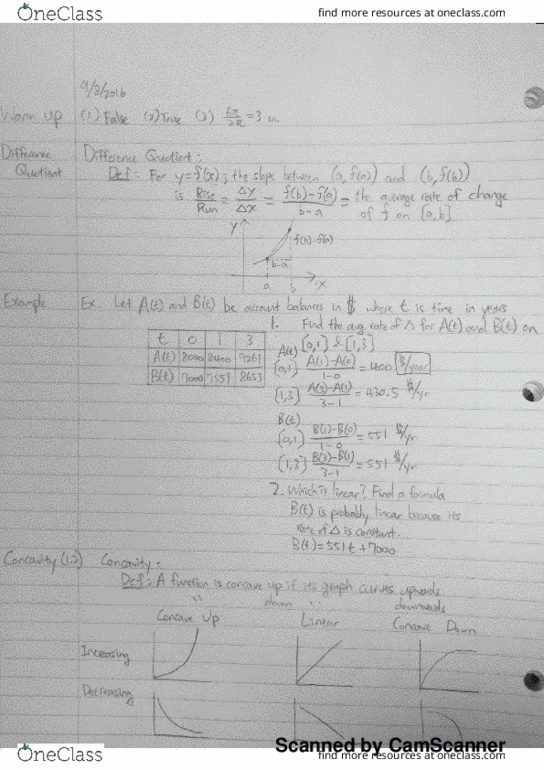 OneClass
find more resources at oneclass.com
9/8/2016
Warm up (1) False (2) True (3) 6π/2π = 3 in.
Difference Quotient
Difference Quotient:
Def: For y=f(x), the slope between (a, f(a)) and (b, f(b))
is Rise/Run = Δy/Δx = f(b)-f(a)/b-a = the average rate of change
of f on [a,b]
y
f(b)-f(a)
b-a
a b x
Example
Ex. Let A(t) and B(t) be account balances in $ where t is time in years
1. Find the avg. rate of Δ for A(t) and B(t) on
[0,1] & [1,3]
t 0 1 3
A(t) 8000 8400 9261
B(t) 7000 7551 8653
A(t)
[0,1] A(1)-A(0)/1-0 = 400 $/year
[1,3] A(3)-A(1)/3-1 = 430.5 $/yr
B(t)
[0,1] B(1)-B(0)/1-0 = 551 $/yr
[1,3] B(3)-B(1)/3-1 = 551 $/yr
2. Which is linear? Find a formula
B(t) is probably linear because its
rate of Δ is constant.
B(t)=551t+7000
Concavity (1.2)
Concavity:
Def: A function is concave up if its graph curves upwards
" down " downwards
Concave Up Linear Concave Down
Increasing
Decreasing
Scanned by CamScanner
OneClass
find more resources at oneclass.com